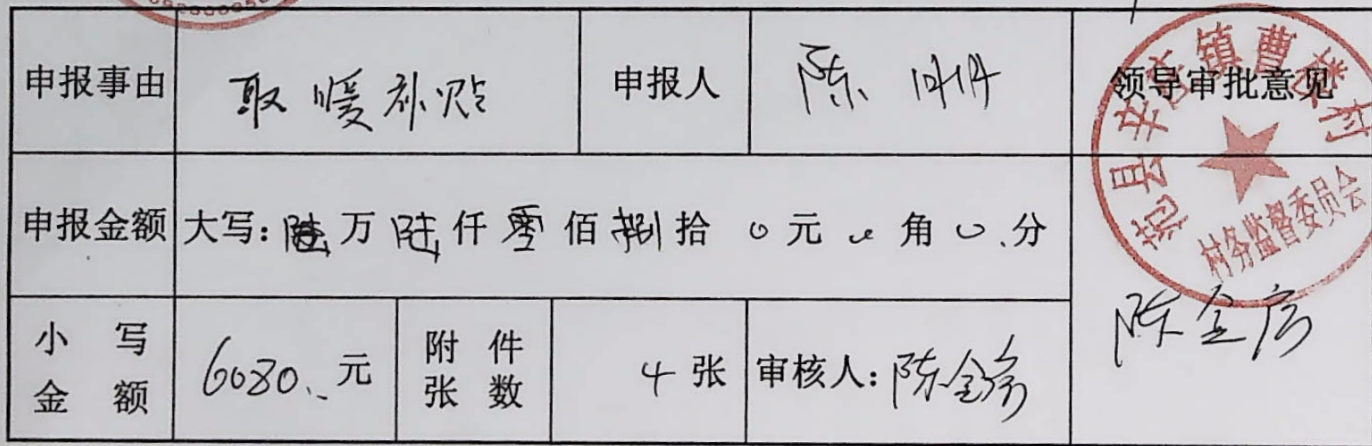 申报事由 取暖补贴 申报人 陈 领导审批意见
申报金额 大写: 陆万陆仟零佰捌拾0元0角0分
小写金额 6080.元 附件张数 4张 审核人: 陈金
陈金房
范县辛庄镇曹楼村
村务监督委员会